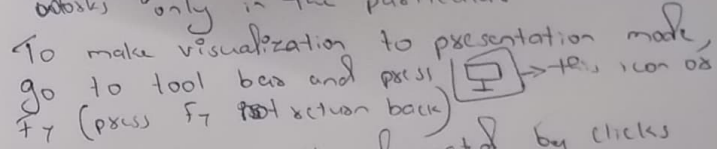 only in the
To make visualization to presentation mode,
go to tool bar and press → this icon or
F7 (press F7 to return back)
by clicks